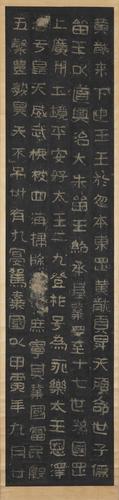 黃龍來下迎王王於忽本東罡黃龍負昇天顧命世子儒
留王以道興治大朱留王紹承基業至十七世孫國罡
上廣開土境平安好太王二九登祚号為永樂太王恩澤
于皇天威武振被四海掃除庶寧其業國富民殷
五穀豊熟昊天不弔卅有九宴駕棄國以甲寅年九月廿